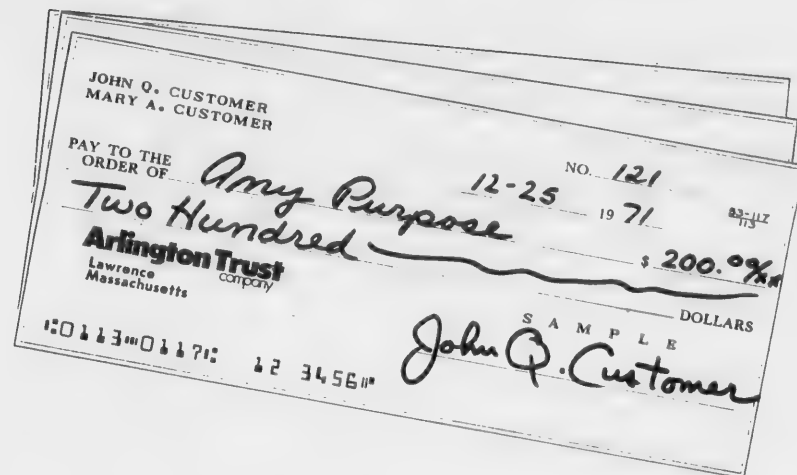 JOHN Q. CUSTOMER
MARY A. CUSTOMER
NO. 121
12-25 19 71
53-117
113
PAY TO THE
ORDER OF Any Purpose $ 200.00/xx
Two Hundred DOLLARS
Arlington Trust
company
Lawrence
Massachusetts
SAMPLE
John Q. Customer
⑆0113⑉0117⑆ 12 3456⑈